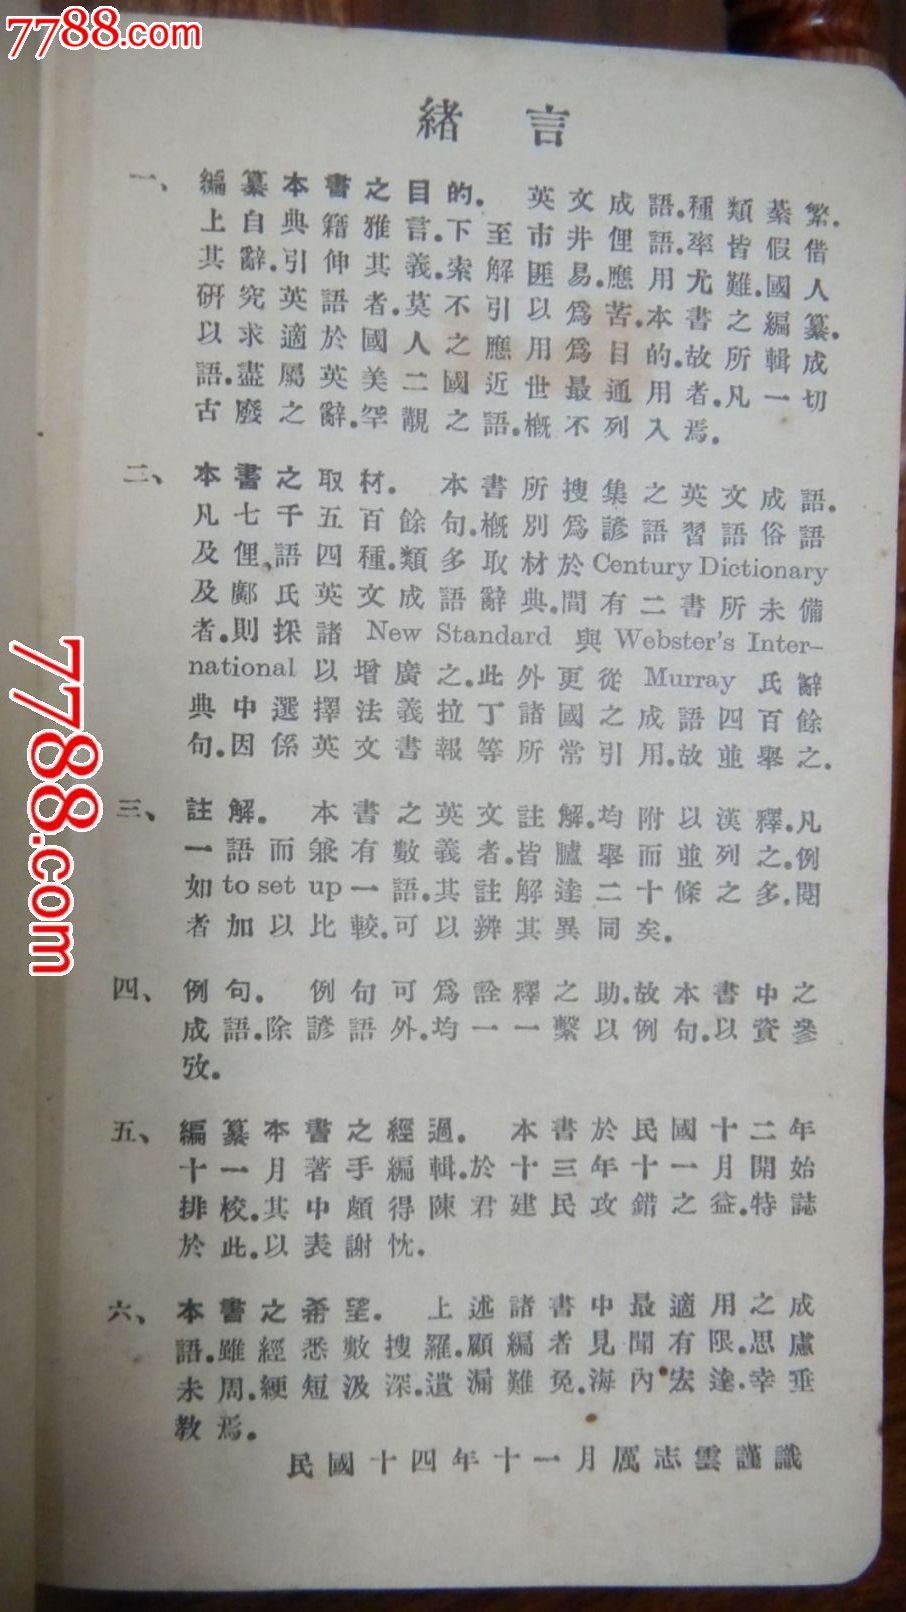 7788.com
緒言
一、編纂本書之目的. 英文成語.種類綦繁.
上自典籍雅言.下至市井俚語.率皆假借
其辭.引伸其義.索解匪易.應用尤難.國人
研究英語者.莫不引以爲苦.本書之編纂.
以求適於國人之應用爲目的.故所輯成
語.盡屬英美二國近世最通用者.凡一切
古廢之辭.罕覯之語.概不列入焉.
二、本書之取材. 本書所搜集之英文成語.
凡七千五百餘句.概別爲諺語習語俗語
及俚語四種.類多取材於Century Dictionary
及鄺氏英文成語辭典.間有二書所未備
者.則採諸 New Standard 與 Webster's Inter-
national 以增廣之.此外更從 Murray 氏辭
典中選擇法義拉丁諸國之成語四百餘
句.因係英文書報等所常引用.故並舉之.
三、註解. 本書之英文註解.均附以漢釋.凡
一語而兼有數義者.皆臚舉而並列之.例
如to set up一語.其註解達二十條之多.閱
者加以比較.可以辨其異同矣.
四、例句. 例句可爲詮釋之助.故本書中之
成語.除諺語外.均一一繫以例句.以資參
攷.
五、編纂本書之經過. 本書於民國十二年
十一月著手編輯.於十三年十一月開始
排校.其中頗得陳君建民攻錯之益.特誌
於此.以表謝忱.
六、本書之希望. 上述諸書中最適用之成
語.雖經悉數搜羅.顧編者見聞有限.思慮
未周.綆短汲深.遺漏難免.海內宏達.幸垂
教焉.
民國十四年十一月厲志雲謹識
7788.com